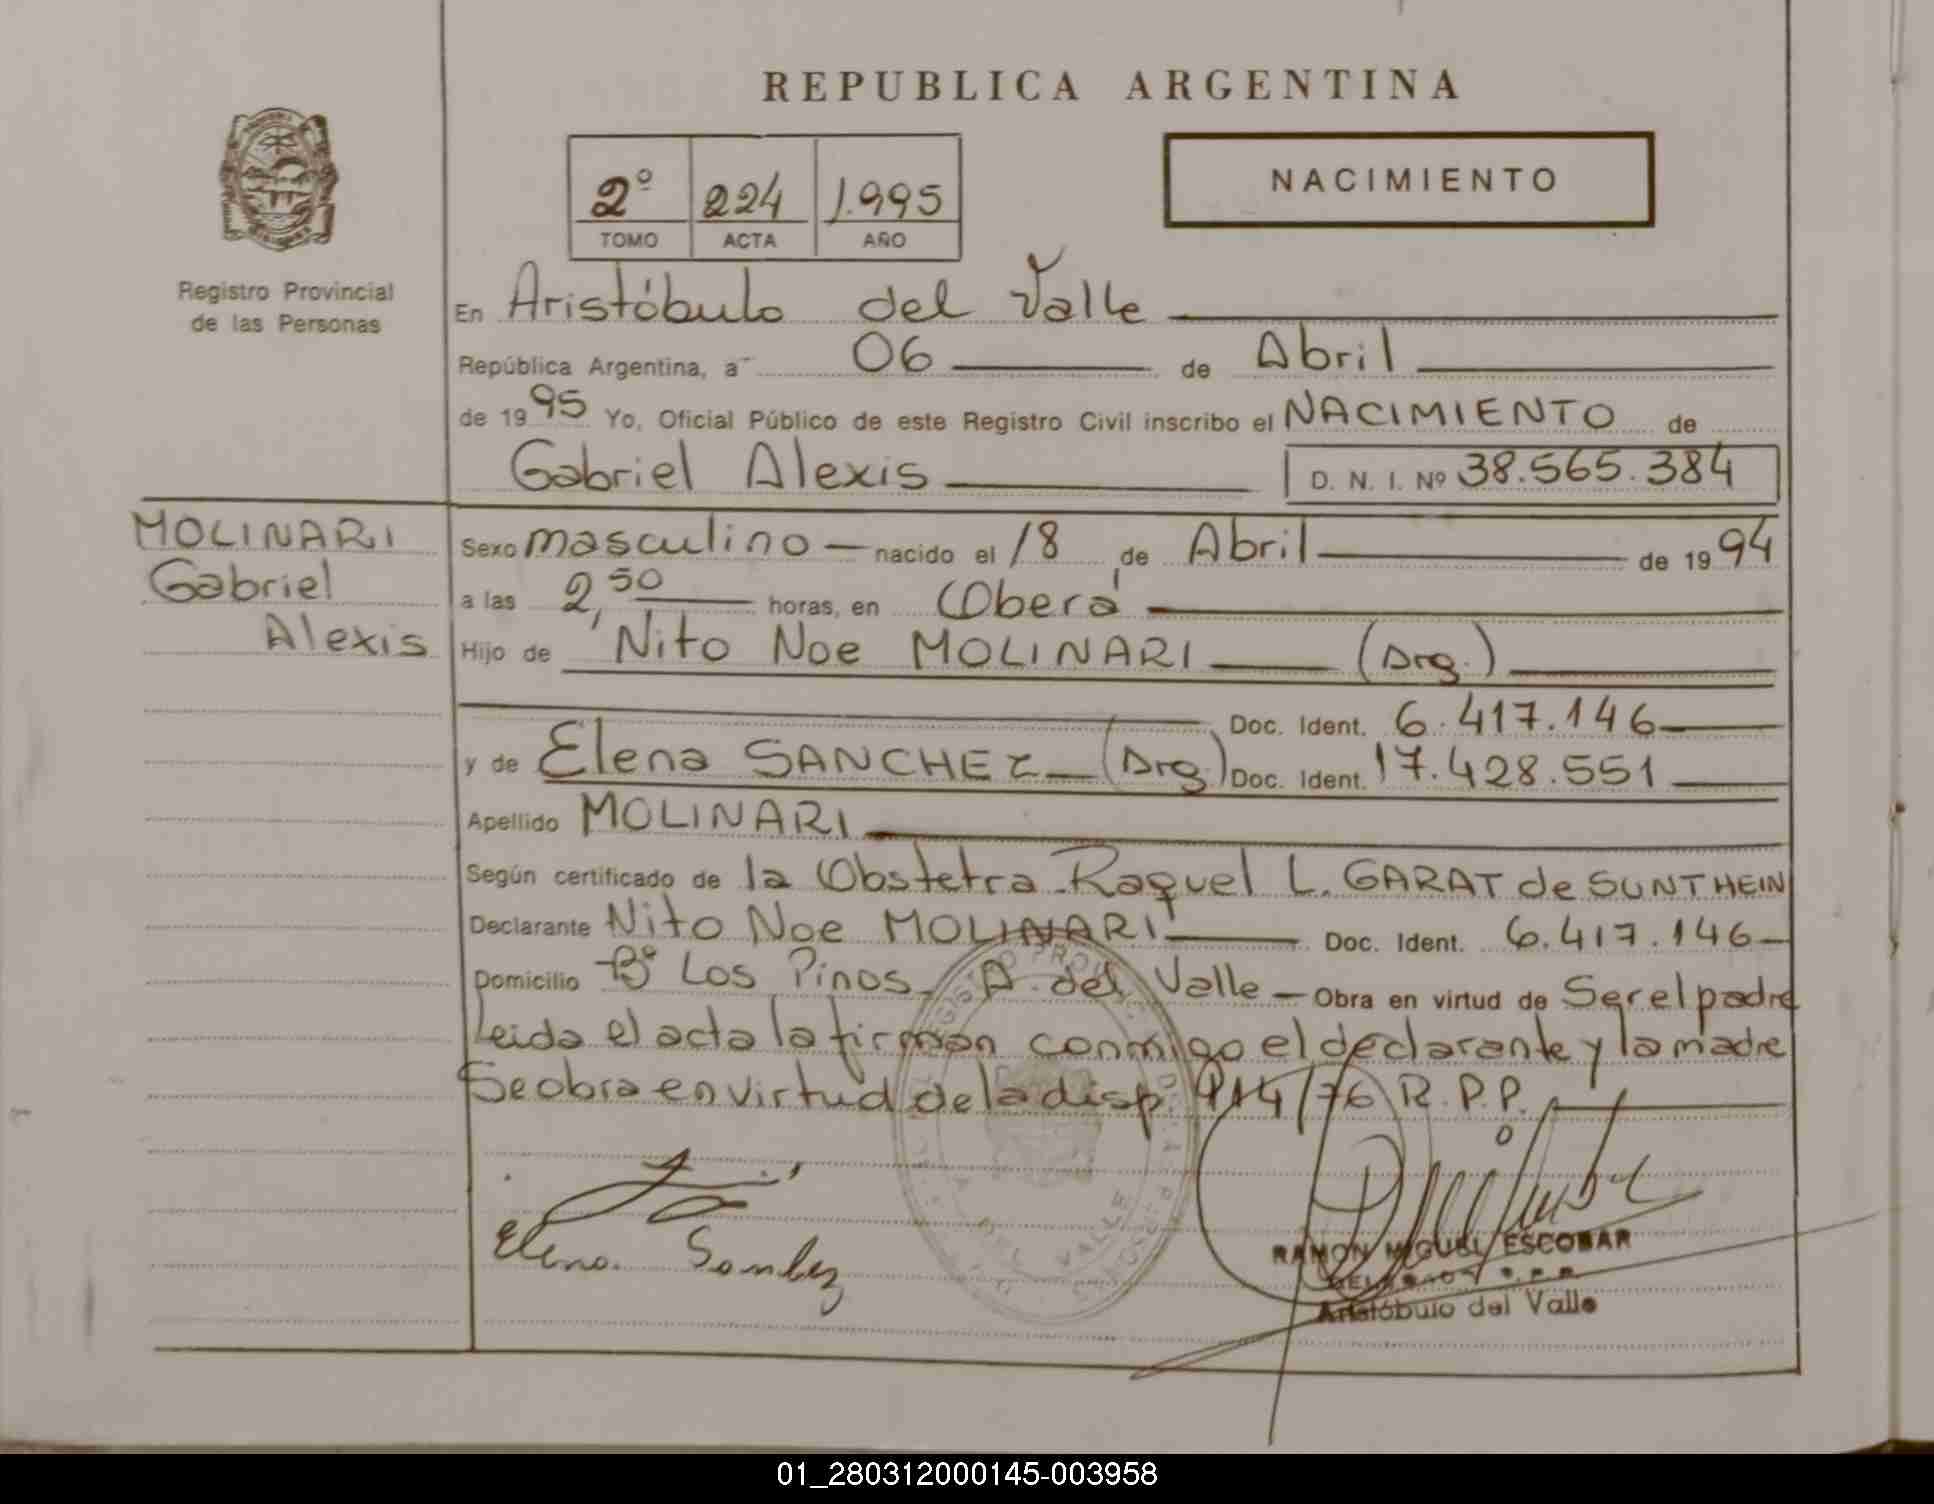 REPUBLICA ARGENTINA
NACIMIENTO
2º 224 1.995
TOMO ACTA AÑO
Registro Provincial
de las Personas
En Aristóbulo del Valle
República Argentina, a 06 de Abril
de 1995 Yo, Oficial Público de este Registro Civil inscribo el NACIMIENTO de
Gabriel Alexis D. N. I. Nº 38.565.384
MOLINARI
Gabriel
Alexis
Sexo masculino nacido el 18 de Abril de 1994
a las 2,50 horas, en Oberá
Hijo de Nito Noe MOLINARI (Arg.)
Doc. Ident. 6.417.146
y de Elena SANCHEZ (Arg) Doc. Ident. 17.428.551
Apellido MOLINARI
Según certificado de la Obstetra Raquel L. GARAT de SUNTHEIN
Declarante Nito Noe MOLINARI Doc. Ident. 6.417.146
Domicilio Bº Los Pinos - A. del Valle - Obra en virtud de Ser el padre
Leida el acta la firman conmigo el declarante y la madre
Se obra en virtud de la disp. 914/76 R.P.P.
Elena Sanchez
RAMON MIGUEL ESCOBAR
Aristóbulo del Valle
01_280312000145-003958